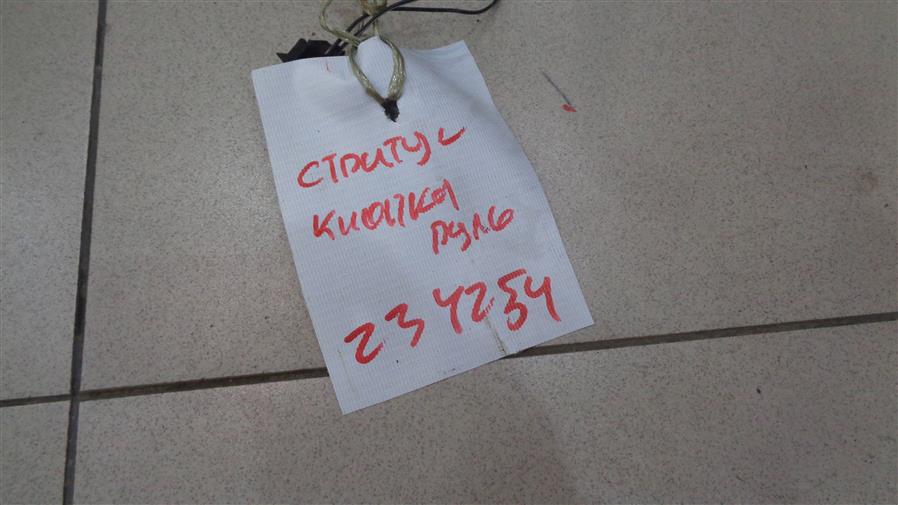 стратус
кнопка
руль
234254